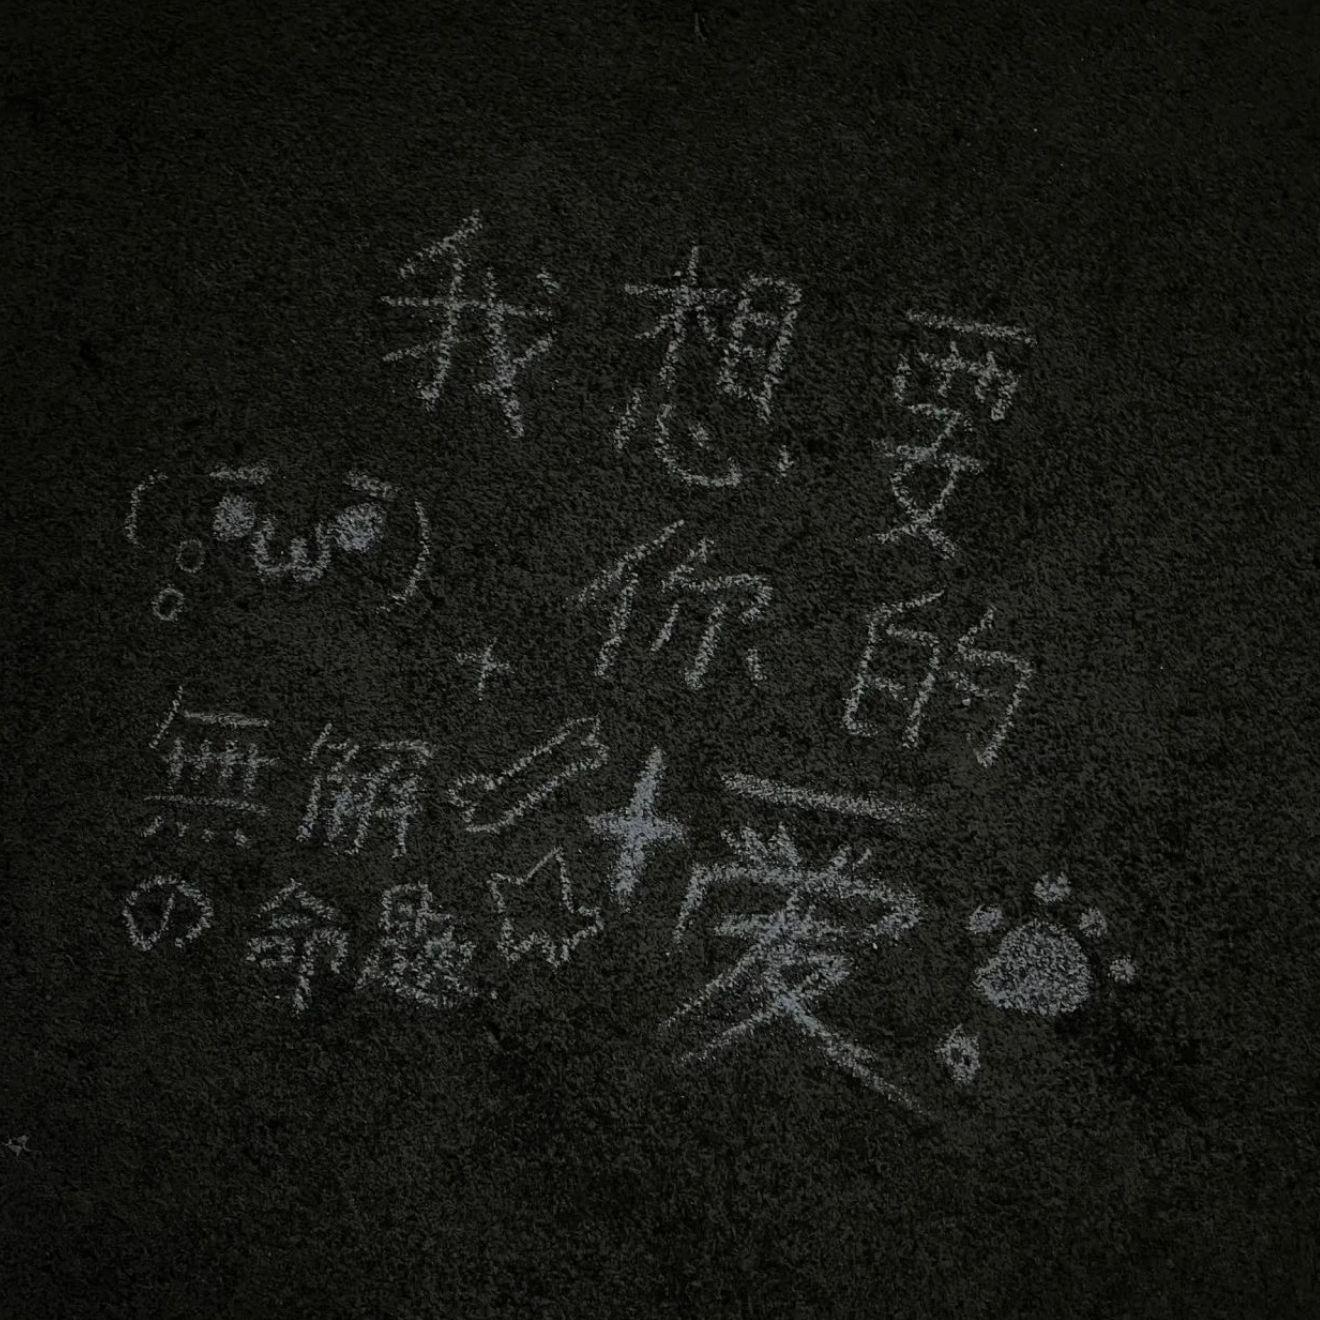 我想要
你的
愛
(•ω•)
無解
の命題